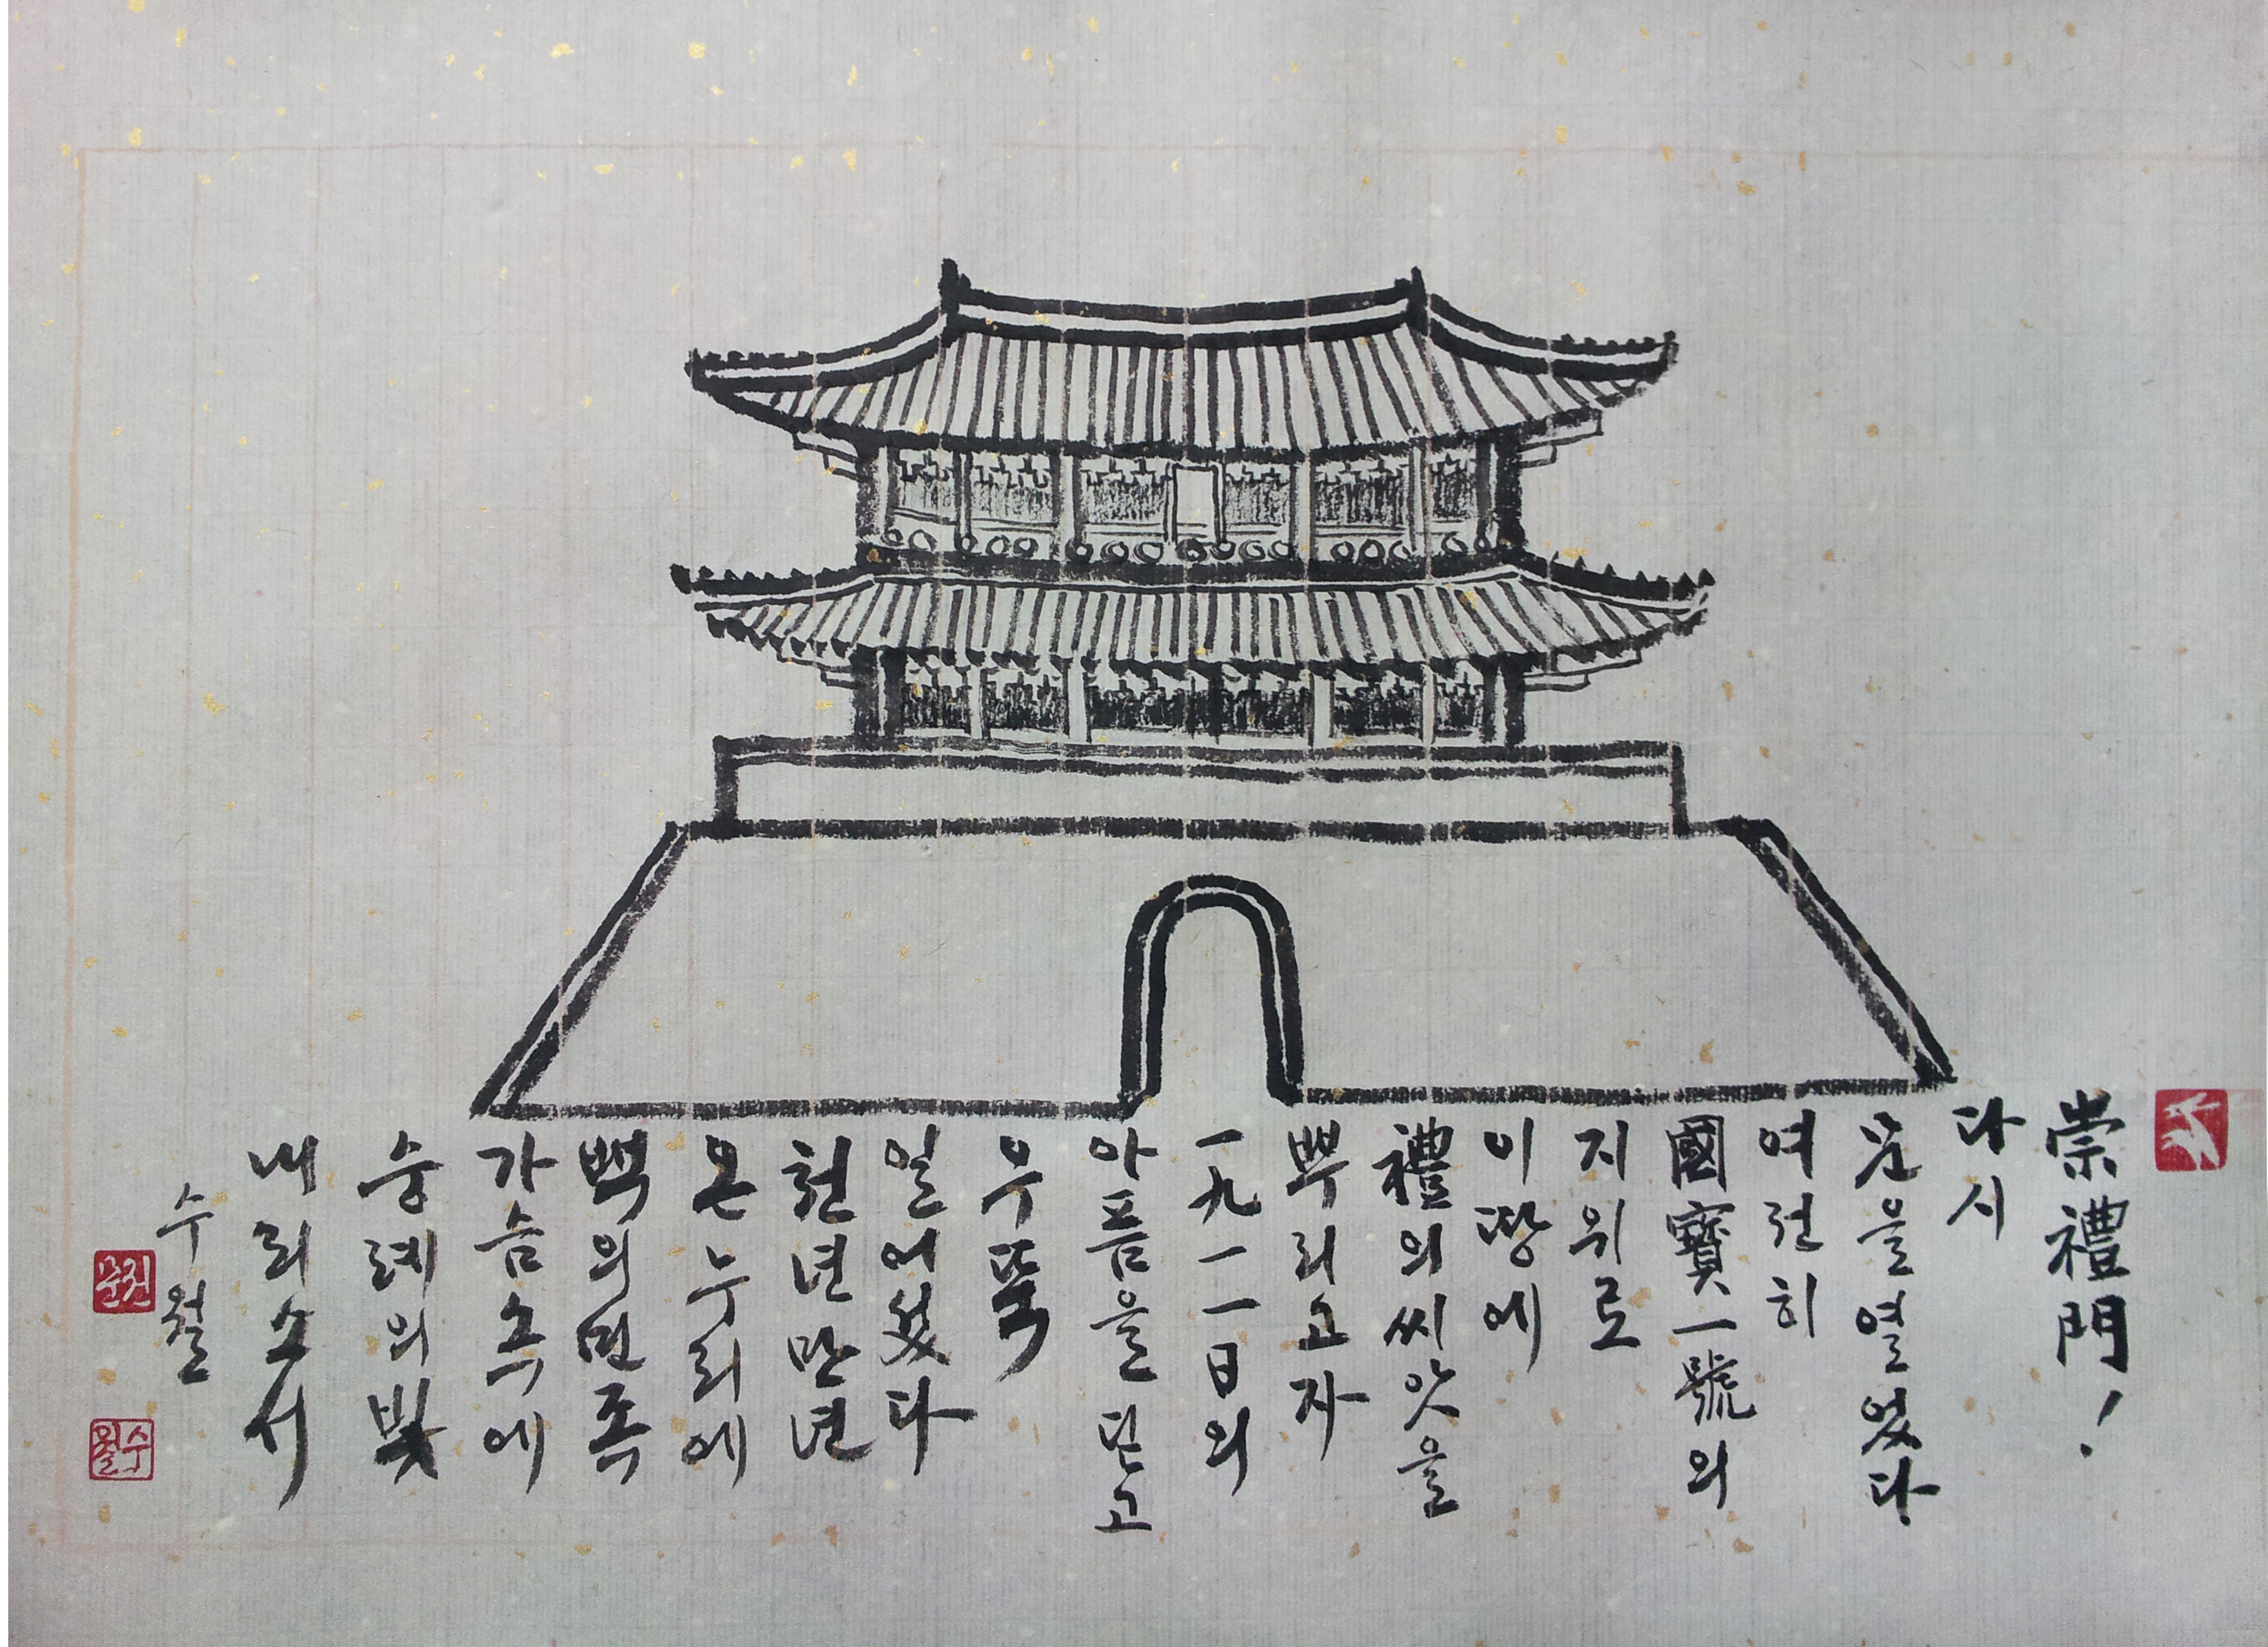 崇禮門!
다시
문을열었다
여전히
國寶一號의
지위로
이땅에
禮의씨앗을
뿌리고자
一九一一日의
아픔을딛고
우뚝
일어섰다
천년만년
온누리에
백의민족
가슴속에
숭례의빛
내리소서
수월
수월